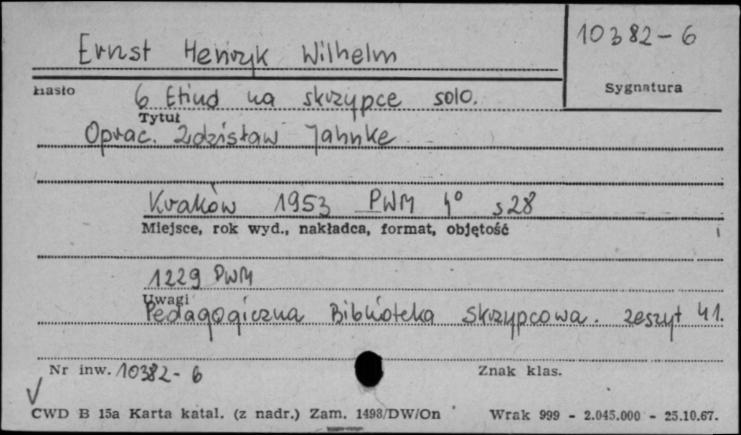 Ernst Henryk Wilhelm
10382-6
Hasło
Sygnatura
6 Etiud na skrzypce solo.
Tytuł
Oprac. Zdzisław Jahnke
Kraków 1953 PWM 4° s 28
Miejsce, rok wyd., nakładca, format, objętość
1229 PWM
Uwagi
Pedagogiczna Biblioteka Skrzypcowa. zeszyt 41.
Nr inw. 10382-6
Znak klas.
CWD B 15a Karta katal. (z nadr.) Zam. 1498/DW/On Wrak 999 - 2.045.000 - 25.10.67.